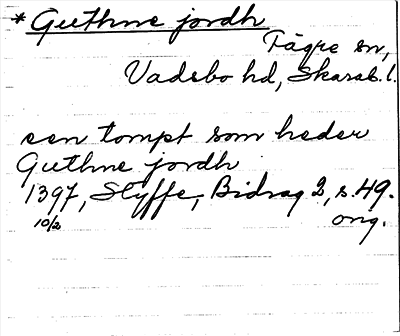 * Guthme jordh
Fägre sn,
Vadsbo hd, Skarab. l.
een tompt som heder
Guthme jordh
1397, Styffe, Bidrag 2, s. 49.
10/2 orig.